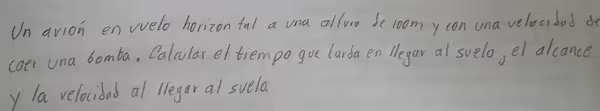 Un avión en vuelo horizontal a una altura de 100m y con una velocidad de
caer una bomba. Calcular el tiempo que tarda en llegar al suelo, el alcance
y la velocidad al llegar al suelo